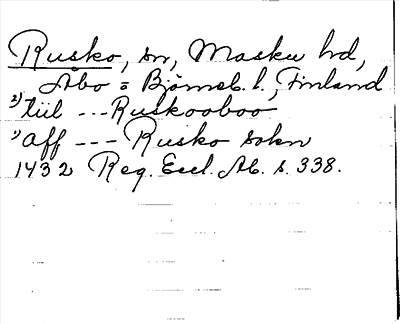 Rusko, sn, Masku hd,
Åbo = Björneb. l., Finland
2) till --- Ruskooboo
1) aff --- Rusko sokn
1432 Reg. Eccl. Ab. s. 338.